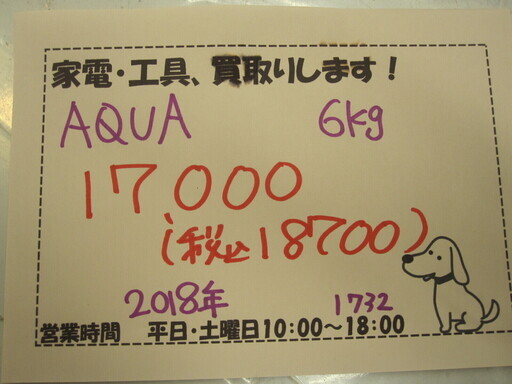 家電・工具、買取りします！
AQUA 6kg
17000
(税込18700)
2018年 1732
営業時間 平日・土曜日10:00～18:00